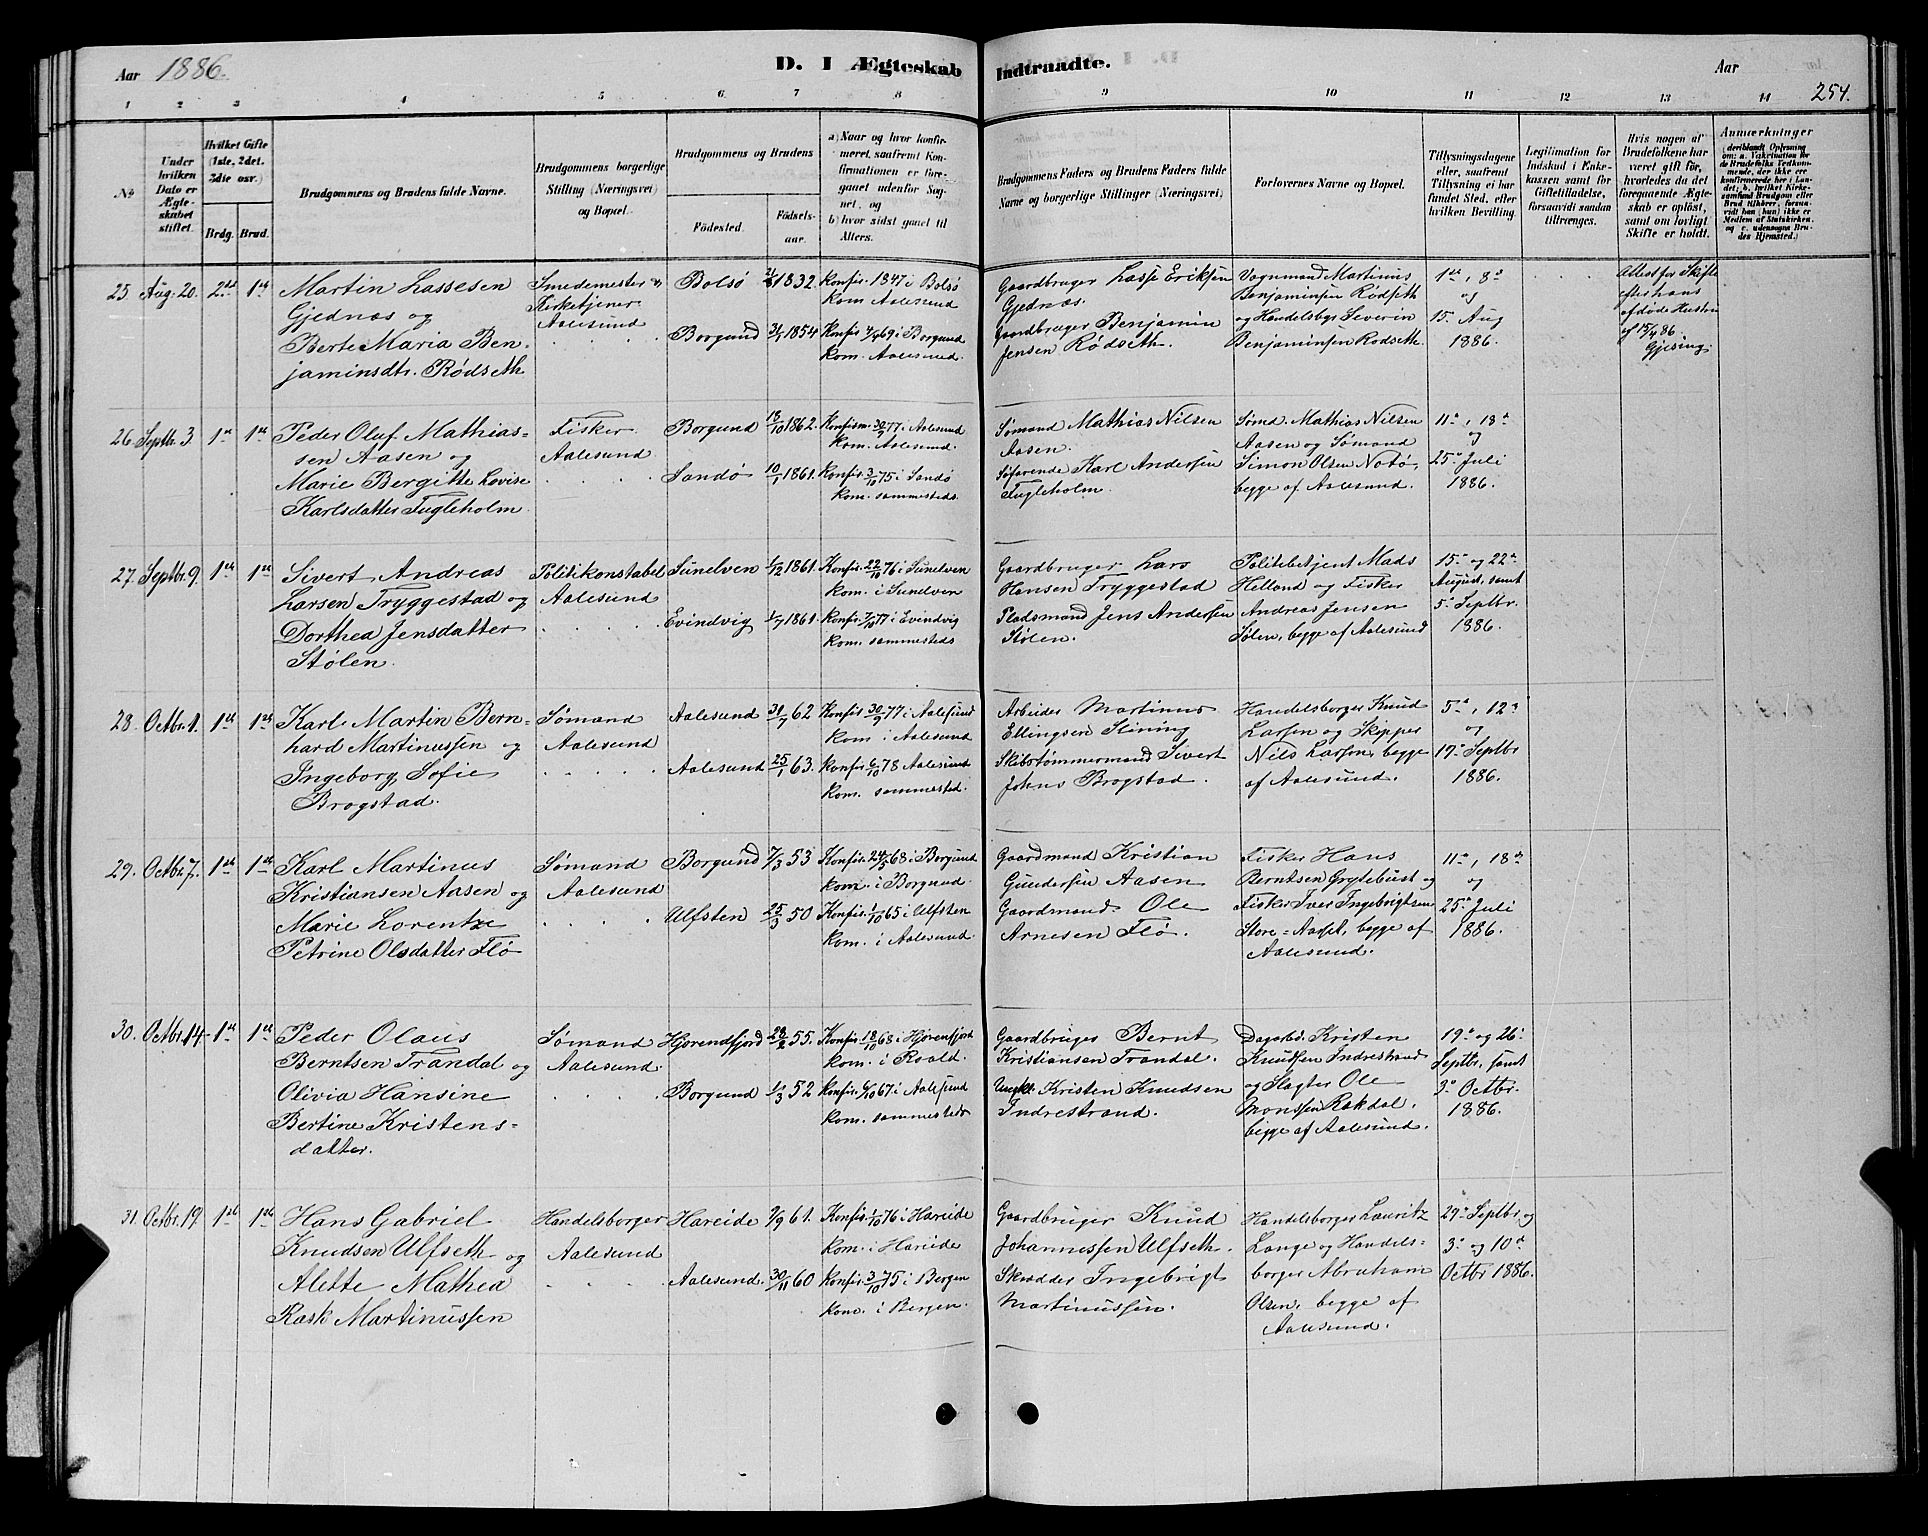 Aar 1886.
D. I Ægteskab Indtraadte.
Aar
254.
1 2 3 4 5 6 7 8 9 10 11 12 13 14
No
Under hvilken Dato er Ægteskabet stiftet.
Hvilket Gifte (1ste, 2det. 3die osv.)
Brdg. Brud.
Brudgommens og Brudens fulde Navne.
Brudgommens borgerlige Stilling (Næringsvei) og Bopæl.
Brudgommens og Brudens
Fødested. Fødselsaar.
a) Naar og hvor konfirmeret, saafremt Konfirmationen er foregaaet udenfor Sognet, og
b) hvor sidst gaaet til Alters.
Brudgommens Faders og Brudens Faders fulde Navne og borgerlige Stillinger (Næringsvei)
Forlovernes Navne og Bopæl.
Tillysningsdagene eller, saafremt Tillysning ei har fundet Sted, efter hvilken Bevilling.
Legitimation for Indskud i Enkekassen samt for Giftetilladelse, forsaavidt saadan tiltrænges.
Hvis nogen af Brudefolkene har været gift før, hvorledes da det foregaaende Ægteskab er opløst, samt om lovligt Skifte er holdt.
Anmærkninger
25 Aug. 20. 2det 1ste
Martin Lassesen
Gjednæs og
Berte Maria Ben-
jaminsdtr. Rødseth
Smedemester og
Kirketjener
Aalesund
Bolsø 1832.
Borgund 1854
Konfir. 1847 i Bolsø
kom Aalesund
Konfir. 69 i Borgund
kom. Aalesund.
Gaardbruger Lasse Eriksen
Gjednæs.
Gaardbruger Benjamin
Jensen Rødseth.
Vognmand Martinus
Benjaminsen Rødseth
og Handelsbgr Severin
Benjaminsen Rødseth
1ste, 8de
og
15. Aug
1886.
Attest for Skifte
efter hans
afdøde Hustru
af 15/4 86.
Gjesing
26 Septbr. 3. 1ste 1ste
Peder Oluf Mathias-
sen Aasen og
Marie Bergitte Lovise
Karlsdatter Fugleholm
Fisker
Aalesund
Borgund 18/10 1862.
Sandø 10/1 1861.
Konfirm. 30/9 77 i Aalesund
kom. Aalesund.
Konfir. 3/10 75 i Sandø
kom. sammesteds.
Sømand Mathias Nilsen
Aasen.
Søfarende Karl Andersen
Fugleholm.
Sømd. Mathias Nilsen
Aasen og Sømand
Simon Olsen Notø,
begge af Aalesund.
11te, 18de
og
25de Juli
1886.
27. Septbr. 9. 1ste 1ste
Sivert Andreas
Larsen Tryggestad og
Dorthea Jensdatter
Stølen.
Politikonstabel
Aalesund
Sunelven 1/12 1861.
Evindvig 1/7 1861.
Konfir. 22/10 76 i Sunelven
kom. i Sunelven
Konfir. 7/10 77 i Evindvig
kom. sammesteds
Gaardbruger Lars
Hansen Tryggestad
Pladsmand Jens Andersen
Stølen.
Politibetjent Mads
Helland og Fisker
Andreas Jensen
Sølen, begge af Aalesund
15de og 22de
August, samt
5te Septbr.
1886.
28. Octbr. 1. 1ste 1ste
Karl Martin Bern-
hard Martinussen og
Ingeborg Sofie
Brogstad.
Sømand
Aalesund
Aalesund 31/7 62
Aalesund 25/1 63.
Konfir. 30/9 77 i Aalesund
kom i Aalesund
Konfir. 6/10 78 Aalesund
kom. sammested.
Arbeider Martinus
Ellingsen Slining
Skibstømmermand Sivert
Johns Brogstad.
Handelsborger Knud
Larsen og Skipper
Nils Larsen, begge
af Aalesund.
5te, 12te
og
19de Septbr
1886.
29. Octbr 7. 1ste 1ste
Karl Martinus
Kristiansen Aasen og
Marie Lorentze
Petrine Olsdatter Flø
Sømand
Aalesund
Borgund 7/3 53
Ulfsten 25/3 50
Konfir. 24/5 68 i Borgund
kom. i Borgund.
Konfir. 1/10 65 i Ulfsten
kom. i Aalesund.
Gaardmand Kristian
Gundersen Aasen
Gaardmand Ole
Arnesen Flø.
Fisker Hans
Berntsen Grytebust og
Fisker Iver Ingebrigtsen
Store-, begge af
Aalesund.
11te, 18de
og
25de Juli
1886.
30. Octbr. 14. 1ste 1ste
Peder Olaus
Berntsen Trandal og
Olivia Hansine
Bertine Kristens-
datter.
Sømand
Aalesund.
Hjorendfjord 28/2 55.
Borgund 1/3 52
Konfir. 18/10 68 i Hjorenfjord
kom. i Roald.
Konfir. 6/10 67 i Aalesund
kom. sammesteds
Gaardbruger Bernt
Kristiansen Trandal.
Kristen Knudsen
Indrestrand.
Dagarbd. Kristen
Knudsen Indrestrand
og Slagter Ole
Monssen Rekdal,
begge af Aalesund.
19de og 26de
Septbr, samt
3die Octbr.
1886.
31. Octbr. 19 1ste 1ste
Hans Gabriel
Knudsen Ulfseth og
Alette Mathea
Rask Martinussen
Handelsborger
Aalesund
Hareide 7/9 61.
Aalesund. 30/11 60
Konfir. 1/10 76 i Hareide
kom. i Hareide
Konfir. 3/10 75 i Bergen
kom. i Bergen.
Gaardbruger Knud
Johannessen Ulfseth.
Skrædder Ingebrigt
Martinussen.
Handelsborger Lauritz
Lange og Handels-
borger Abraham
Olsen, begge af
Aalesund.
27de Septbr og
3die og 10de
Octbr 1886.